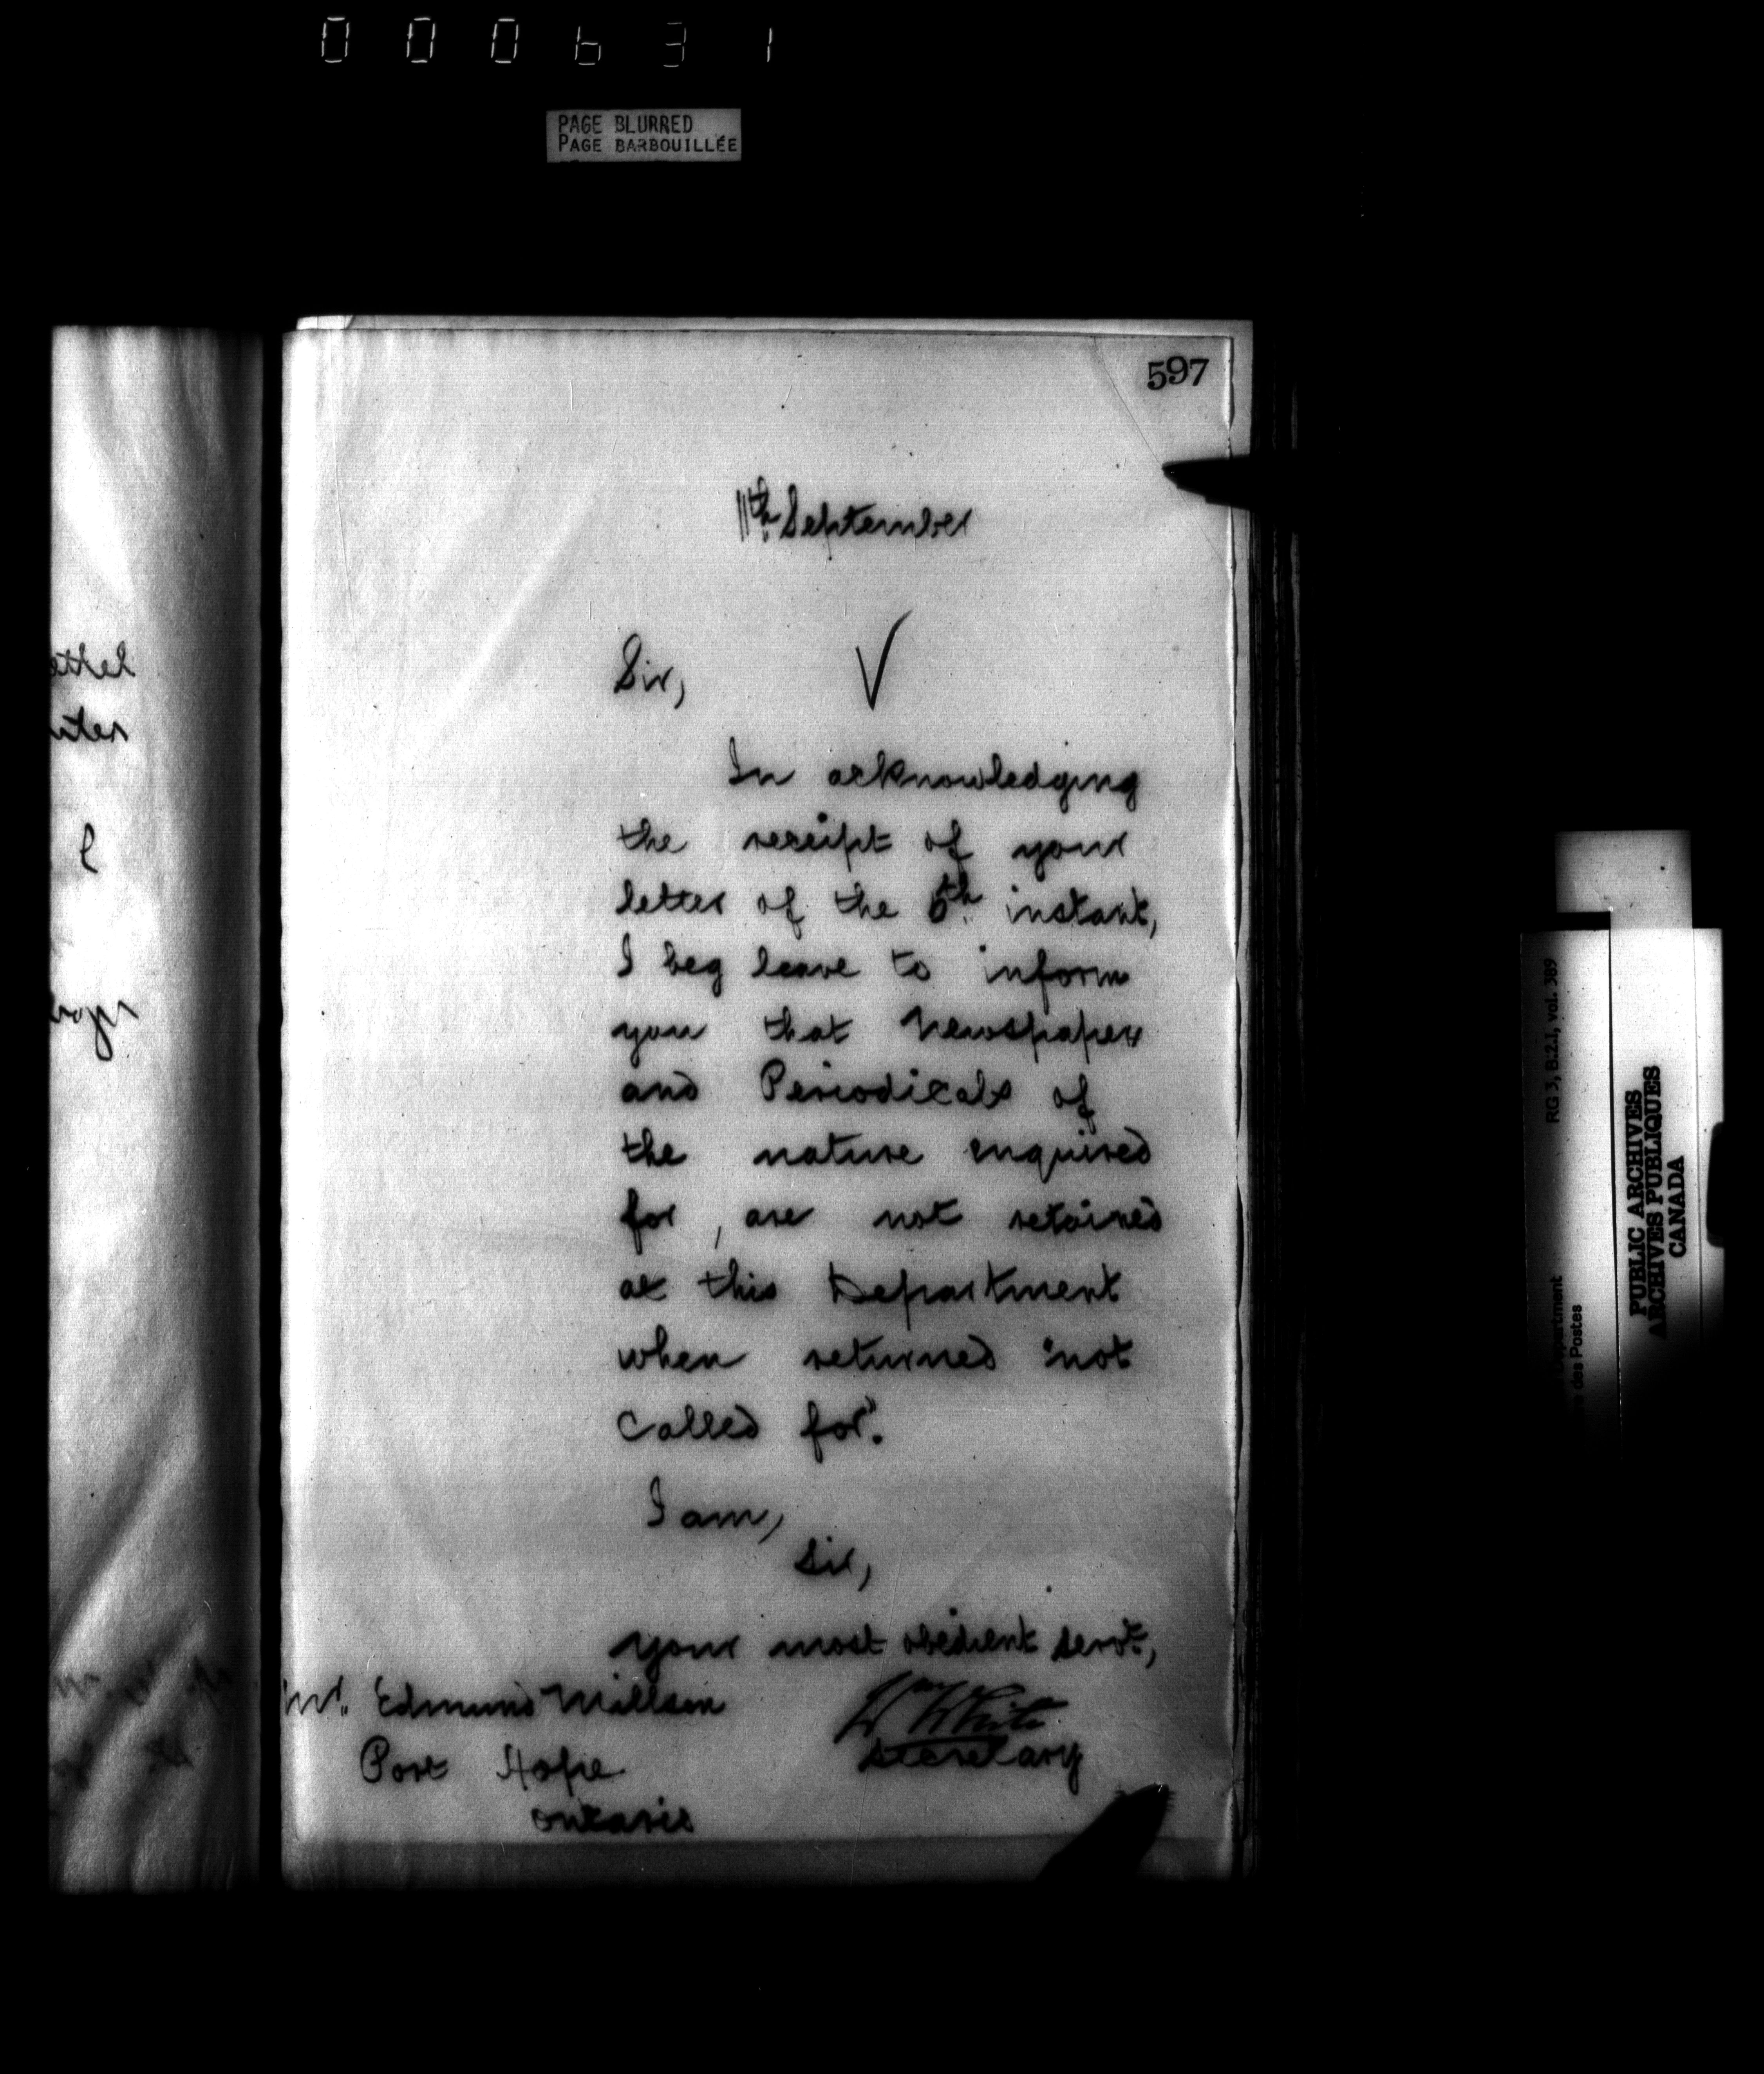 000631
PAGE BLURRED
PAGE BARBOUILLÉE
597
11th September
Sir,
In acknowledging
the receipt of your
letter of the 6th instant,
I beg leave to inform
you that Newspapers
and Periodicals of
the nature enquired
for, are not retained
at this Department
when returned "not
called for".
I am,
Sir,
your most obedient servt,
Mr. Edmund Millson
Wm White
Secretary
Port Hope
Ontario
RG 3, B.2.1, vol. 389
des Postes
PUBLIC ARCHIVES
ARCHIVES PUBLIQUES
CANADA